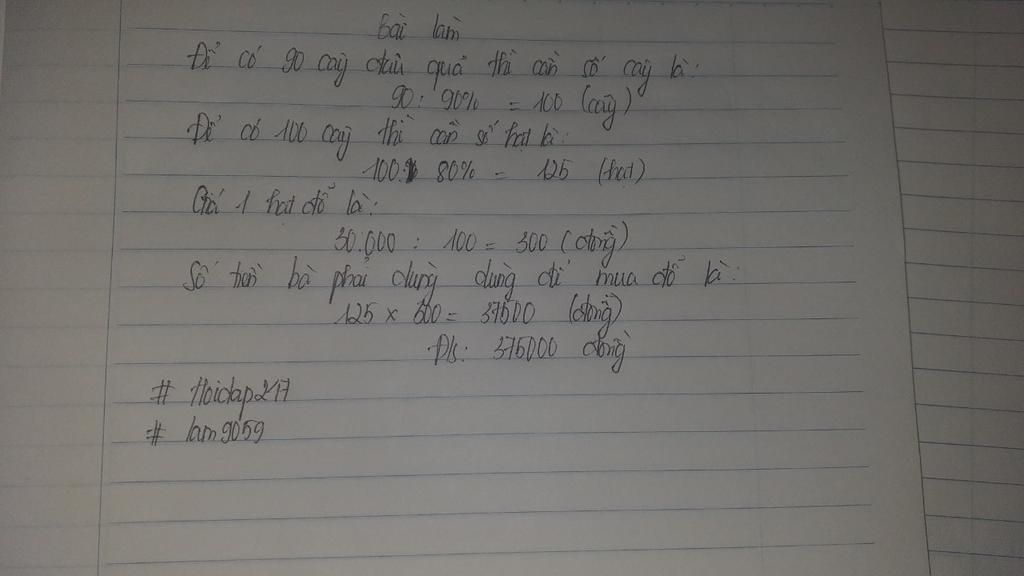 Bài làm
Để có 90 cây đậu quả thì cần số cây là:
90 : 90% = 100 (cây)
Để có 100 cây thì cần số hạt là:
100 : 80% = 125 (hạt)
Giá 1 hạt đỗ là:
30.000 : 100 = 300 (đồng)
Số tiền bà phải dùng dùng để mua đỗ là:
125 × 300 = 37500 (đồng)
Đ/s: 375000 đồng
# Hoidap247
# lam9059